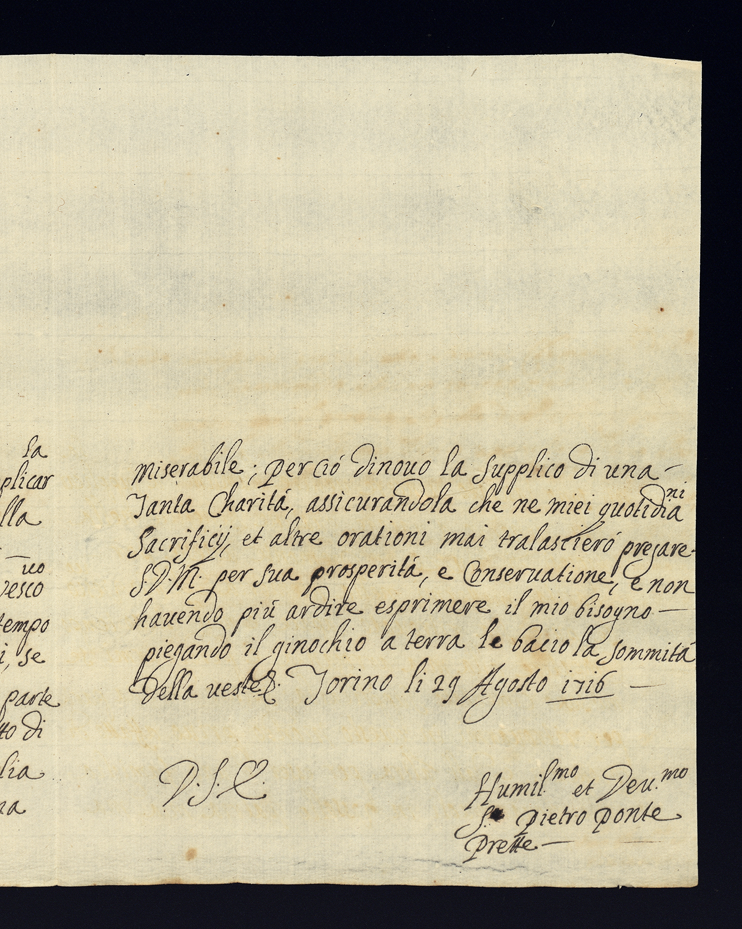 la
plicar
lla
uo
vesco
tempo
i, se
parte
tto di
lia
na
miserabile; perció dinouo la supplico di una
Tanta Charitá, assicurandola che ne miei quotidia ni
Sacrificij, et altre orationi mai tralascieró pregare
S. D. M. per sua prosperitá, e Conseruatione, e non
hauendo piú ardire esprimere il mio bisogno
piegando il ginochio a terra le bacio la sommitá
della veste. Torino li 29 Agosto 1716
D. S.
Humil.mo et Deu.mo
Pietro Ponte
Prette